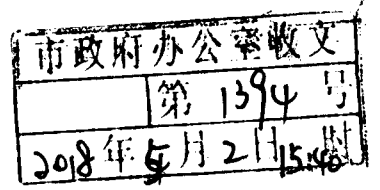 市政府办公室收文
第 1394 号
2018 年 5 月 2 日 15:40 时